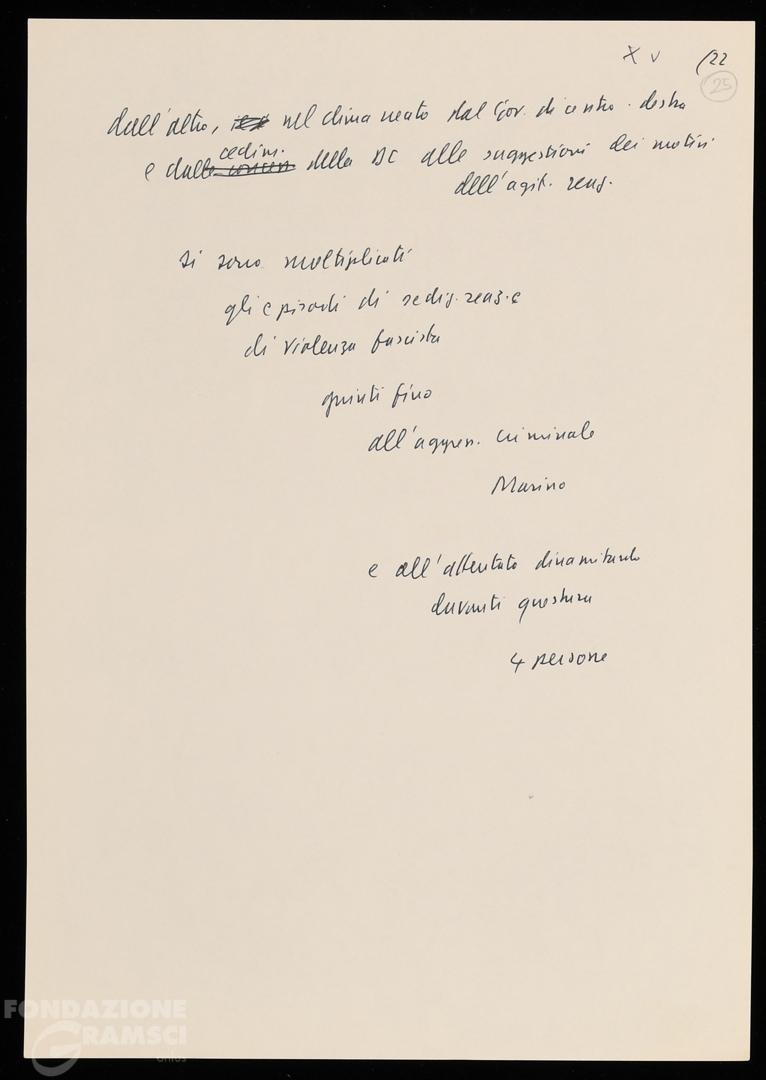 X V (22
25
dall'altro, nel clima creato dal Gov. di centro-destra
cedim.
e dalle concess della DC alle suggestioni dei motivi
dell'agit. reaz.
si sono moltiplicati
gli episodi di sediz. reaz. e
di violenza fascista
giunti fino
all'aggress. criminale
Marino
e all'attentato dinamitardo
davanti questura
4 persone
FONDAZIONE
GRAMSCI
onlus